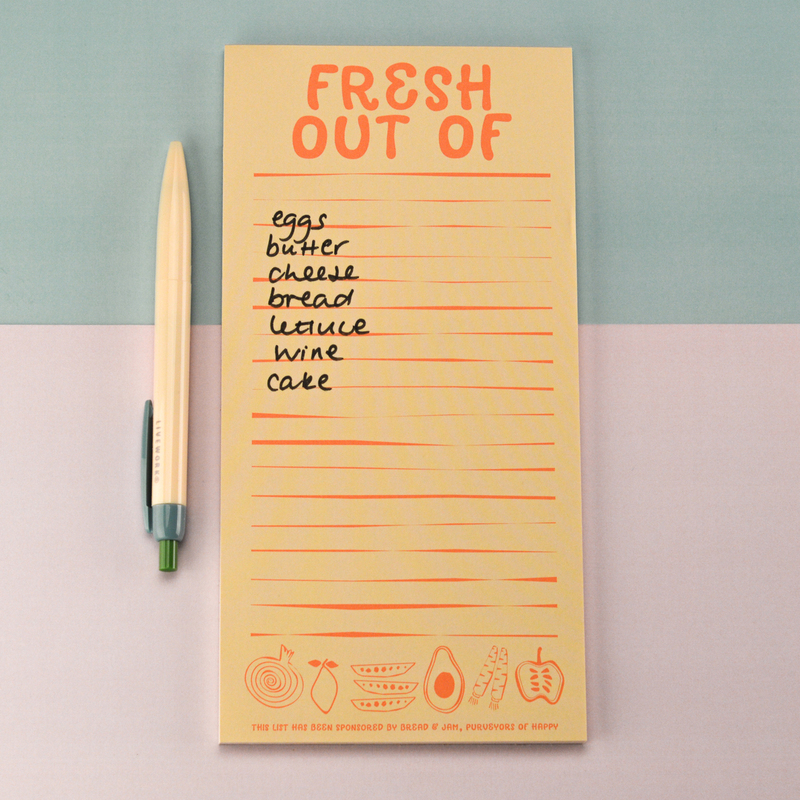 FRESH
OUT OF
eggs
butter
cheese
bread
lettuce
wine
cake
THIS LIST HAS BEEN SPONSORED BY BREAD & JAM, PURVEYORS OF HAPPY
LIVEWORK